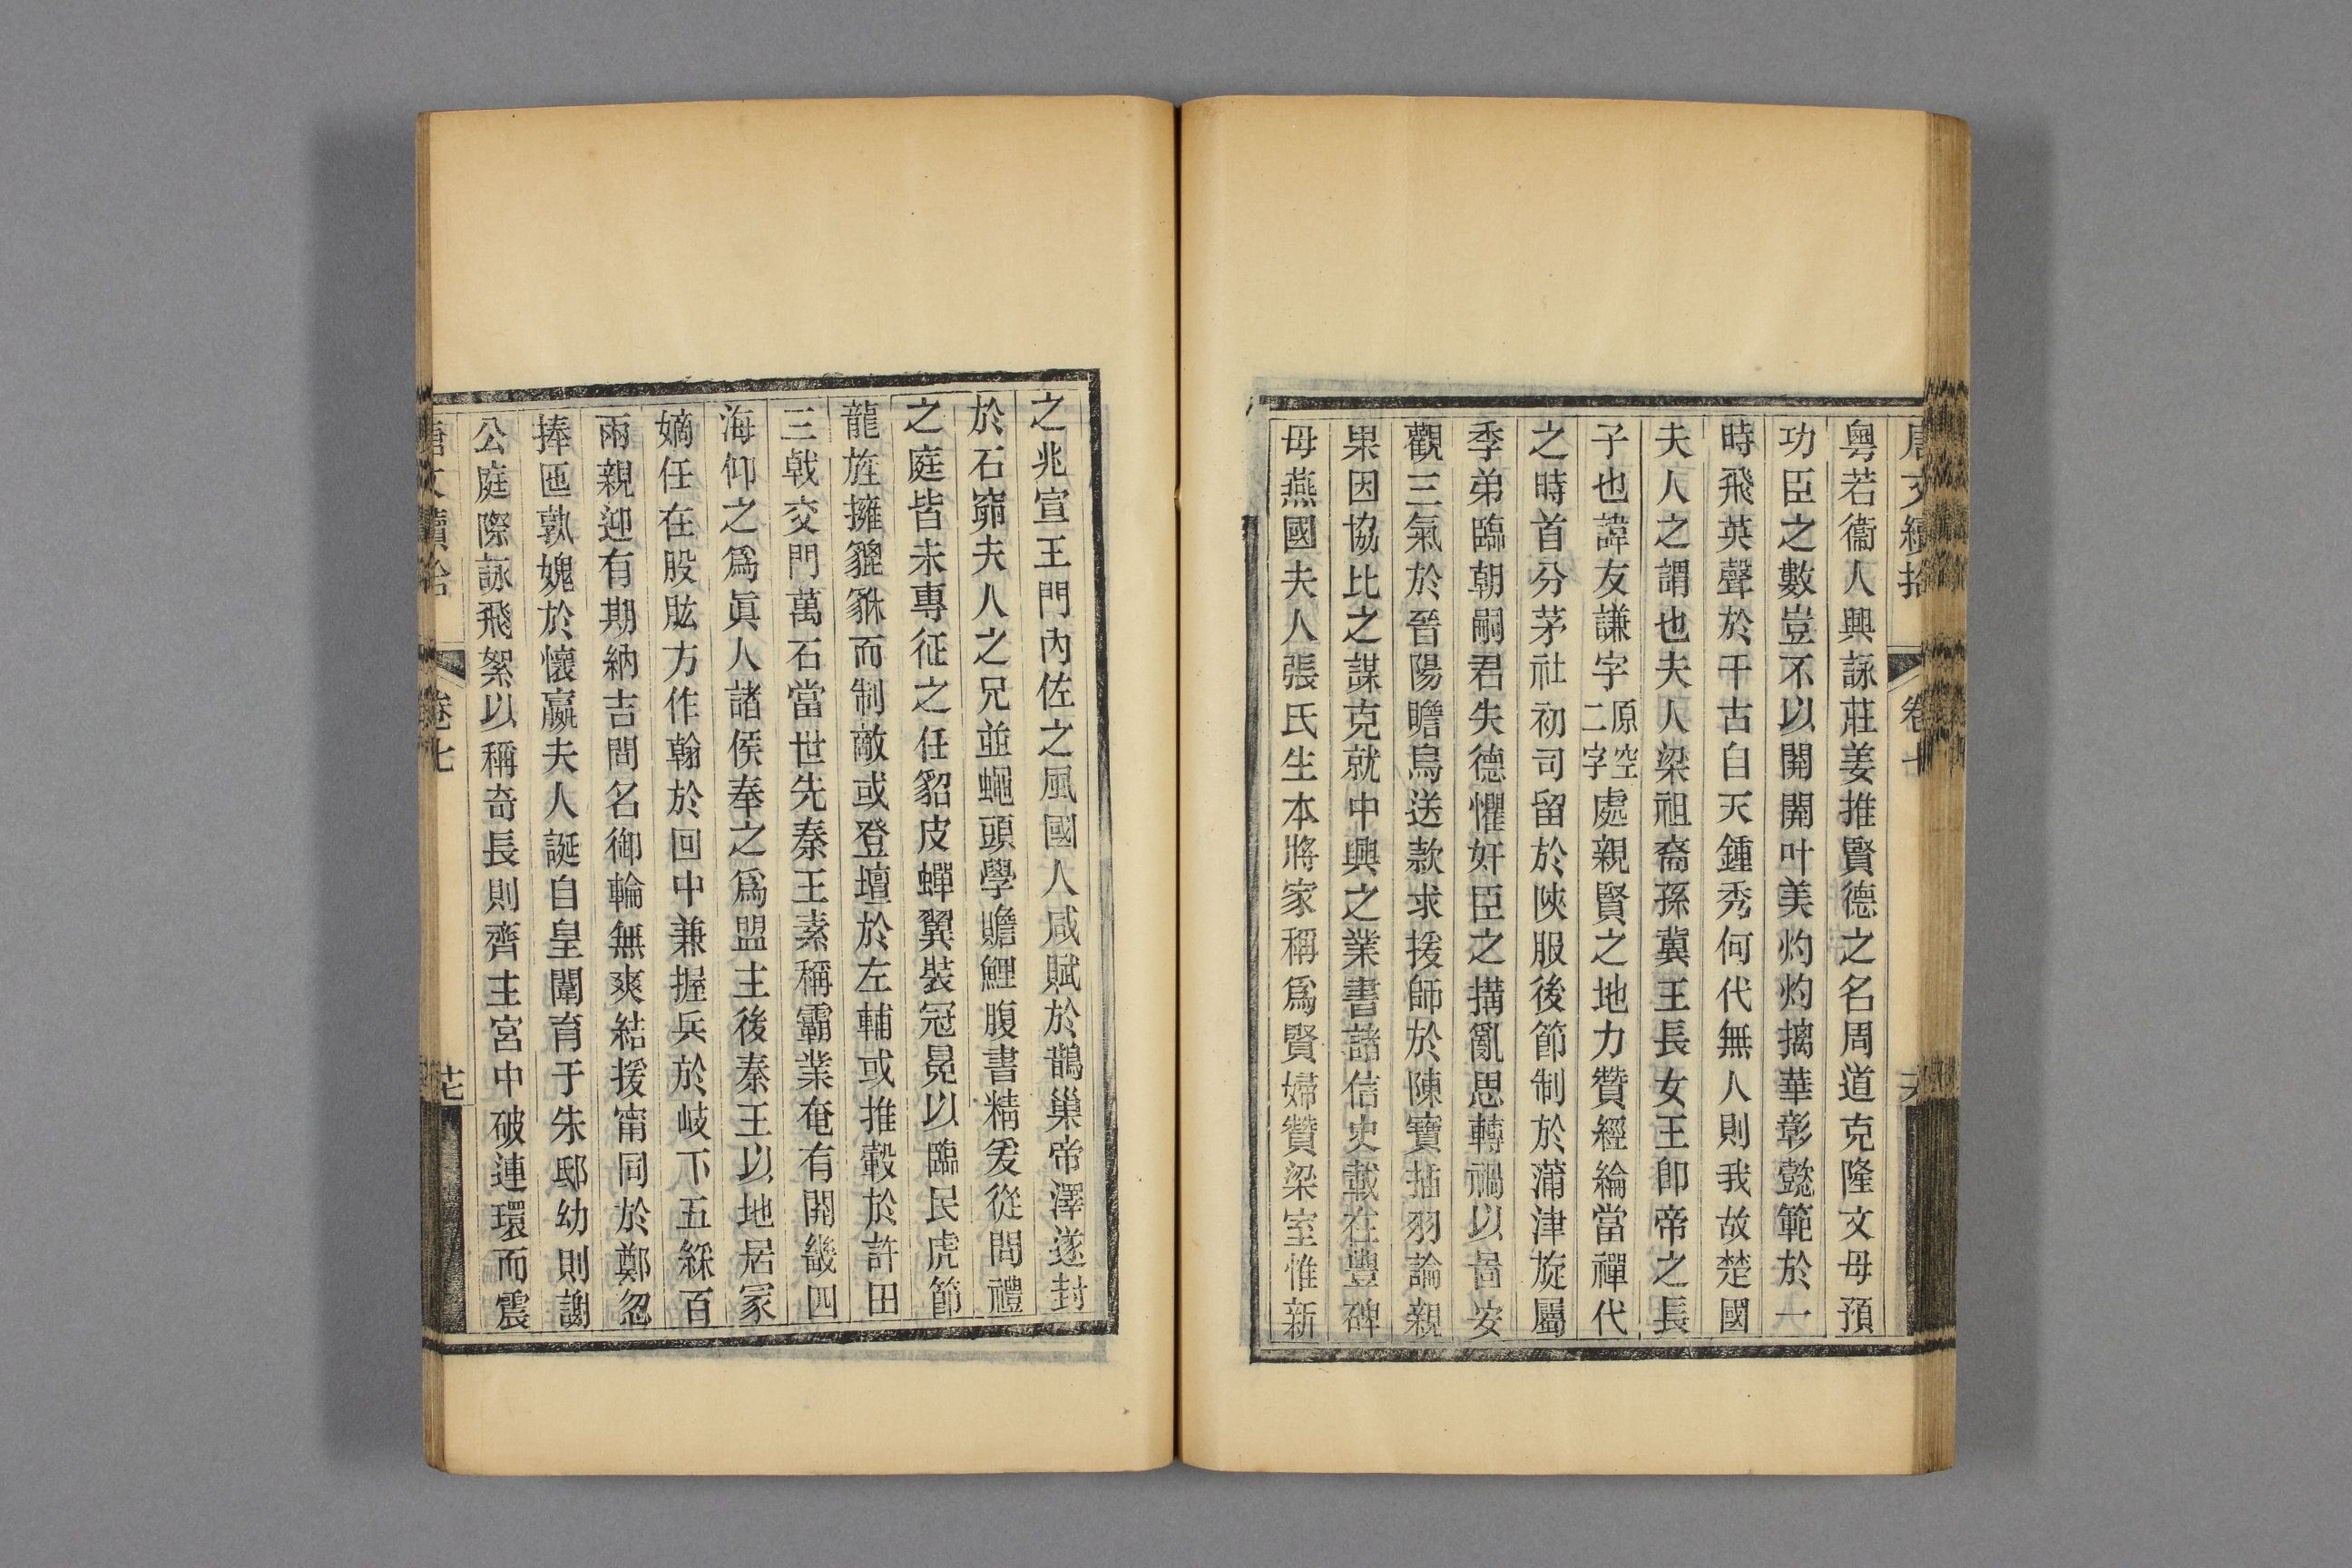 唐文續拾 卷七
粵若衞人興詠莊姜推賢德之名周道克隆文母預
功臣之數豈不以開開叶美灼灼摛華彰懿範於一
時飛英聲於千古自天鍾秀何代無人則我故楚國
夫人之謂也夫人梁祖裔孫冀王長女王卽帝之長
子也諱友謙字原空二字處親賢之地力贊經綸當禪代
之時首分茅社初司留於陝服後節制於蒲津旋屬
季弟臨朝嗣君失德懼奸臣之搆亂思轉禍以啚安
觀三氣於晉陽瞻烏送款求援師於陳寶插羽論親
果因協比之謀克就中興之業書諸信史載在豐碑
母燕國夫人張氏生本將家稱爲賢婦贊梁室惟新
之兆宣王門內佐之風國人咸賦於鵲巢帝澤遂封
於石窌夫人之兄並蠅頭學贍鯉腹書精爰從問禮
之庭皆未專征之任貂皮蟬翼裝冠冕以臨民虎節
龍旌擁貔貅而制敵或登壇於左輔或推轂於許田
三戟交門萬石當世先秦王素稱霸業奄有開畿四
海仰之爲眞人諸侯奉之爲盟主後秦王以地居冢
嫡任在股肱方作翰於回中兼握兵於岐下五綵百
兩親迎有期納吉問名御輪無爽結援甯同於鄭忽
捧匜孰媿於懷嬴夫人誕自皇闈育于朱邸幼則謝
公庭際詠飛絮以稱奇長則齊主宮中破連環而震
唐文續拾 卷七 十七